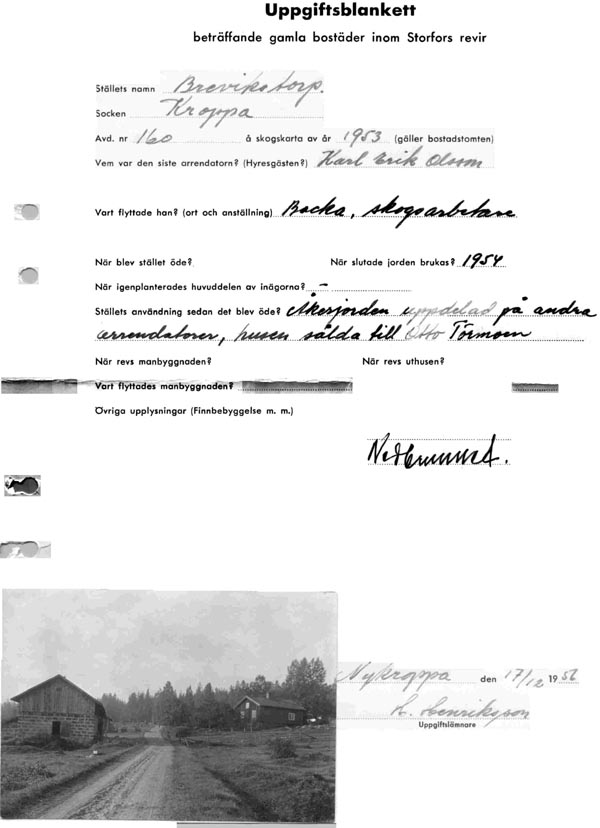 Uppgiftsblankett
beträffande gamla bostäder inom Storfors revir
Ställets namn Brevikstorp.
Socken Kroppa
Avd. nr 160 å skogskarta av år 1953 (gäller bostadstomten)
Vem var den siste arrendatorn? (Hyresgästen?) Karl Erik Olsson
Vart flyttade han? (ort och anställning) Backa, skogsarbetare
När blev stället öde? När slutade jorden brukas? 1954
När igenplanterades huvuddelen av inägorna? -
Ställets användning sedan det blev öde? Åkerjorden uppdelad på andra
arrendatorer, husen sålda till Otto Törmoen
När revs manbyggnaden? När revs uthusen?
Vart flyttades manbyggnaden?
Övriga upplysningar (Finnbebyggelse m. m.)
Nedbrunnet.
Nykroppa den 17/12 1956
H. Henriksson
Uppgiftslämnare